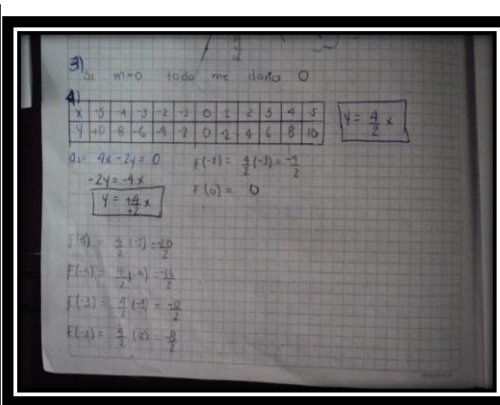 3)
Si m=0 todo me daria 0
4)
X -5 -4 -3 -2 -1 0 1 2 3 4 5
Y -10 -8 -6 -4 -2 0 2 4 6 8 10
y = 4/2 x
4x - 2y = 0
-2y = -4x
y = +4/+2 x
F(-1) = 4/2 (-1) = -4/2
F(0) = 0
F(-5) = 4/2 (-5) = -20/2
F(-4) = 4/2 (-4) = -16/2
F(-3) = 4/2 (-3) = -12/2
F(-2) = 4/2 (2) = -8/2